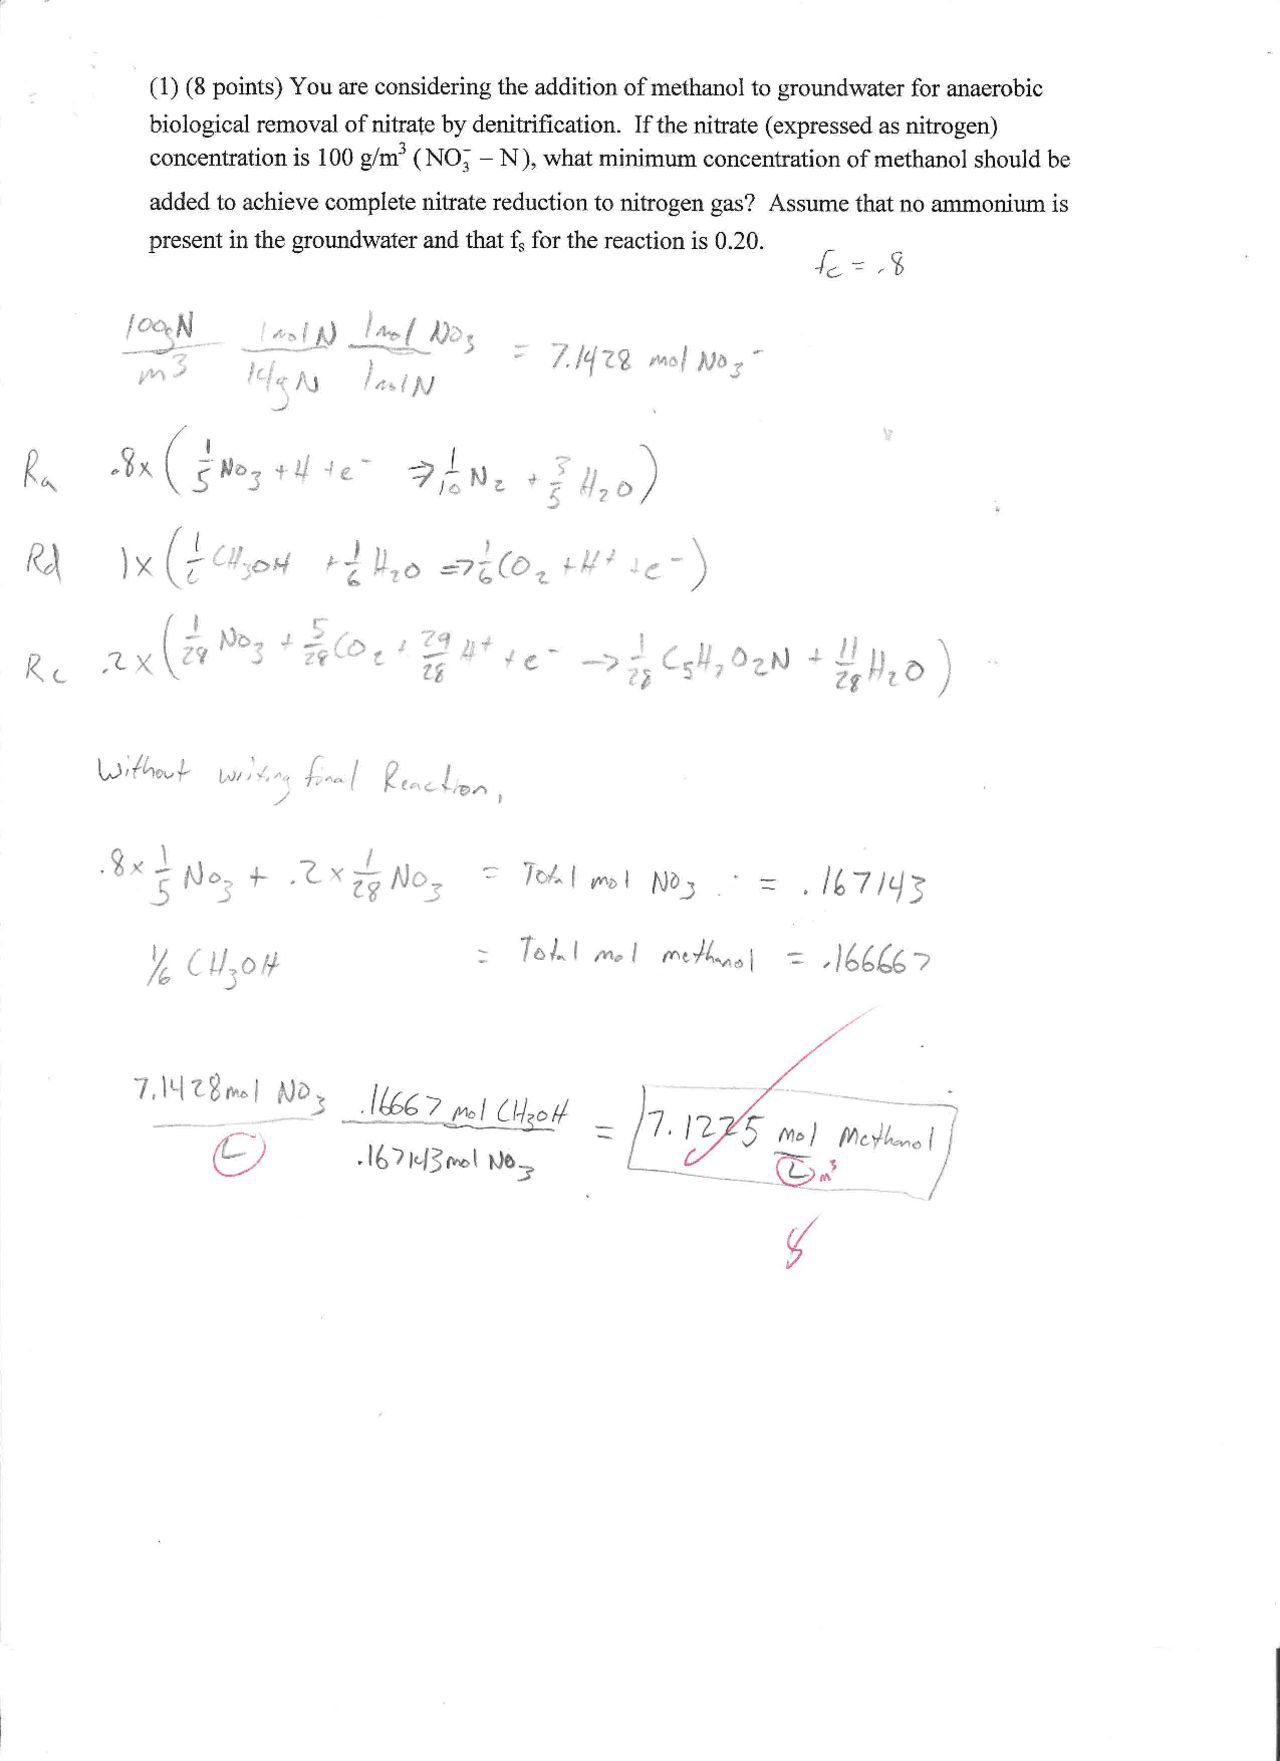 (1) (8 points) You are considering the addition of methanol to groundwater for anaerobic
biological removal of nitrate by denitrification. If the nitrate (expressed as nitrogen)
concentration is 100 g/m³ (NO₃⁻ – N), what minimum concentration of methanol should be
added to achieve complete nitrate reduction to nitrogen gas? Assume that no ammonium is
present in the groundwater and that fₛ for the reaction is 0.20.
fc = .8
100gN/m³ 1molN/14gN 1mol NO₃/1molN = 7.1428 mol NO₃⁻
Ra .8x (1/5 NO₃ + H + e⁻ → 1/10 N₂ + 3/5 H₂O)
Rd 1x (1/6 CH₃OH + 1/6 H₂O => 1/6 CO₂ + H⁺ + e⁻)
Rc .2x (1/28 NO₃ + 5/28 CO₂ + 29/28 H⁺ + e⁻ → 1/28 C₅H₇O₂N + 11/28 H₂O)
Without writing final Reaction,
.8 x 1/5 NO₃ + .2 x 1/28 NO₃ = Total mol NO₃ = .167143
1/6 CH₃OH = Total mol methanol = .166667
7.1428 mol NO₃/L .16667 mol CH₃OH/.167143 mol NO₃ = 7.1225 mol Methanol/L m³
8